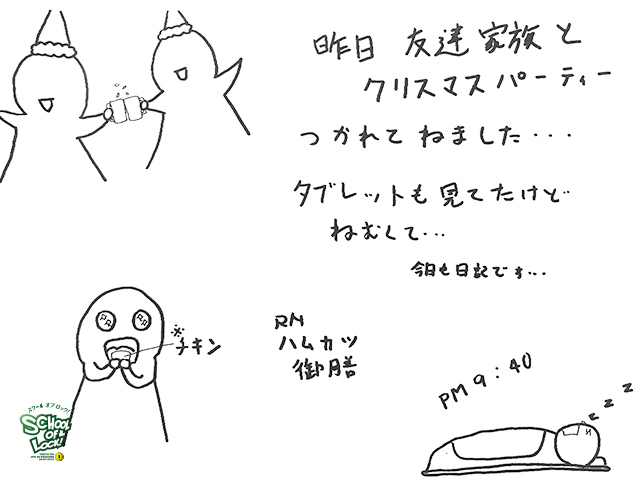 昨日 友達家族と
クリスマスパーティー
つかれてねました・・・
タブレットも見てたけど
ねむくて・・・
今日も日記です…
※チキン
RN
ハムカツ
御膳
PM 9:40
z z z z
スクール オブ ロック!
SCHOOL
OF
LOCK!